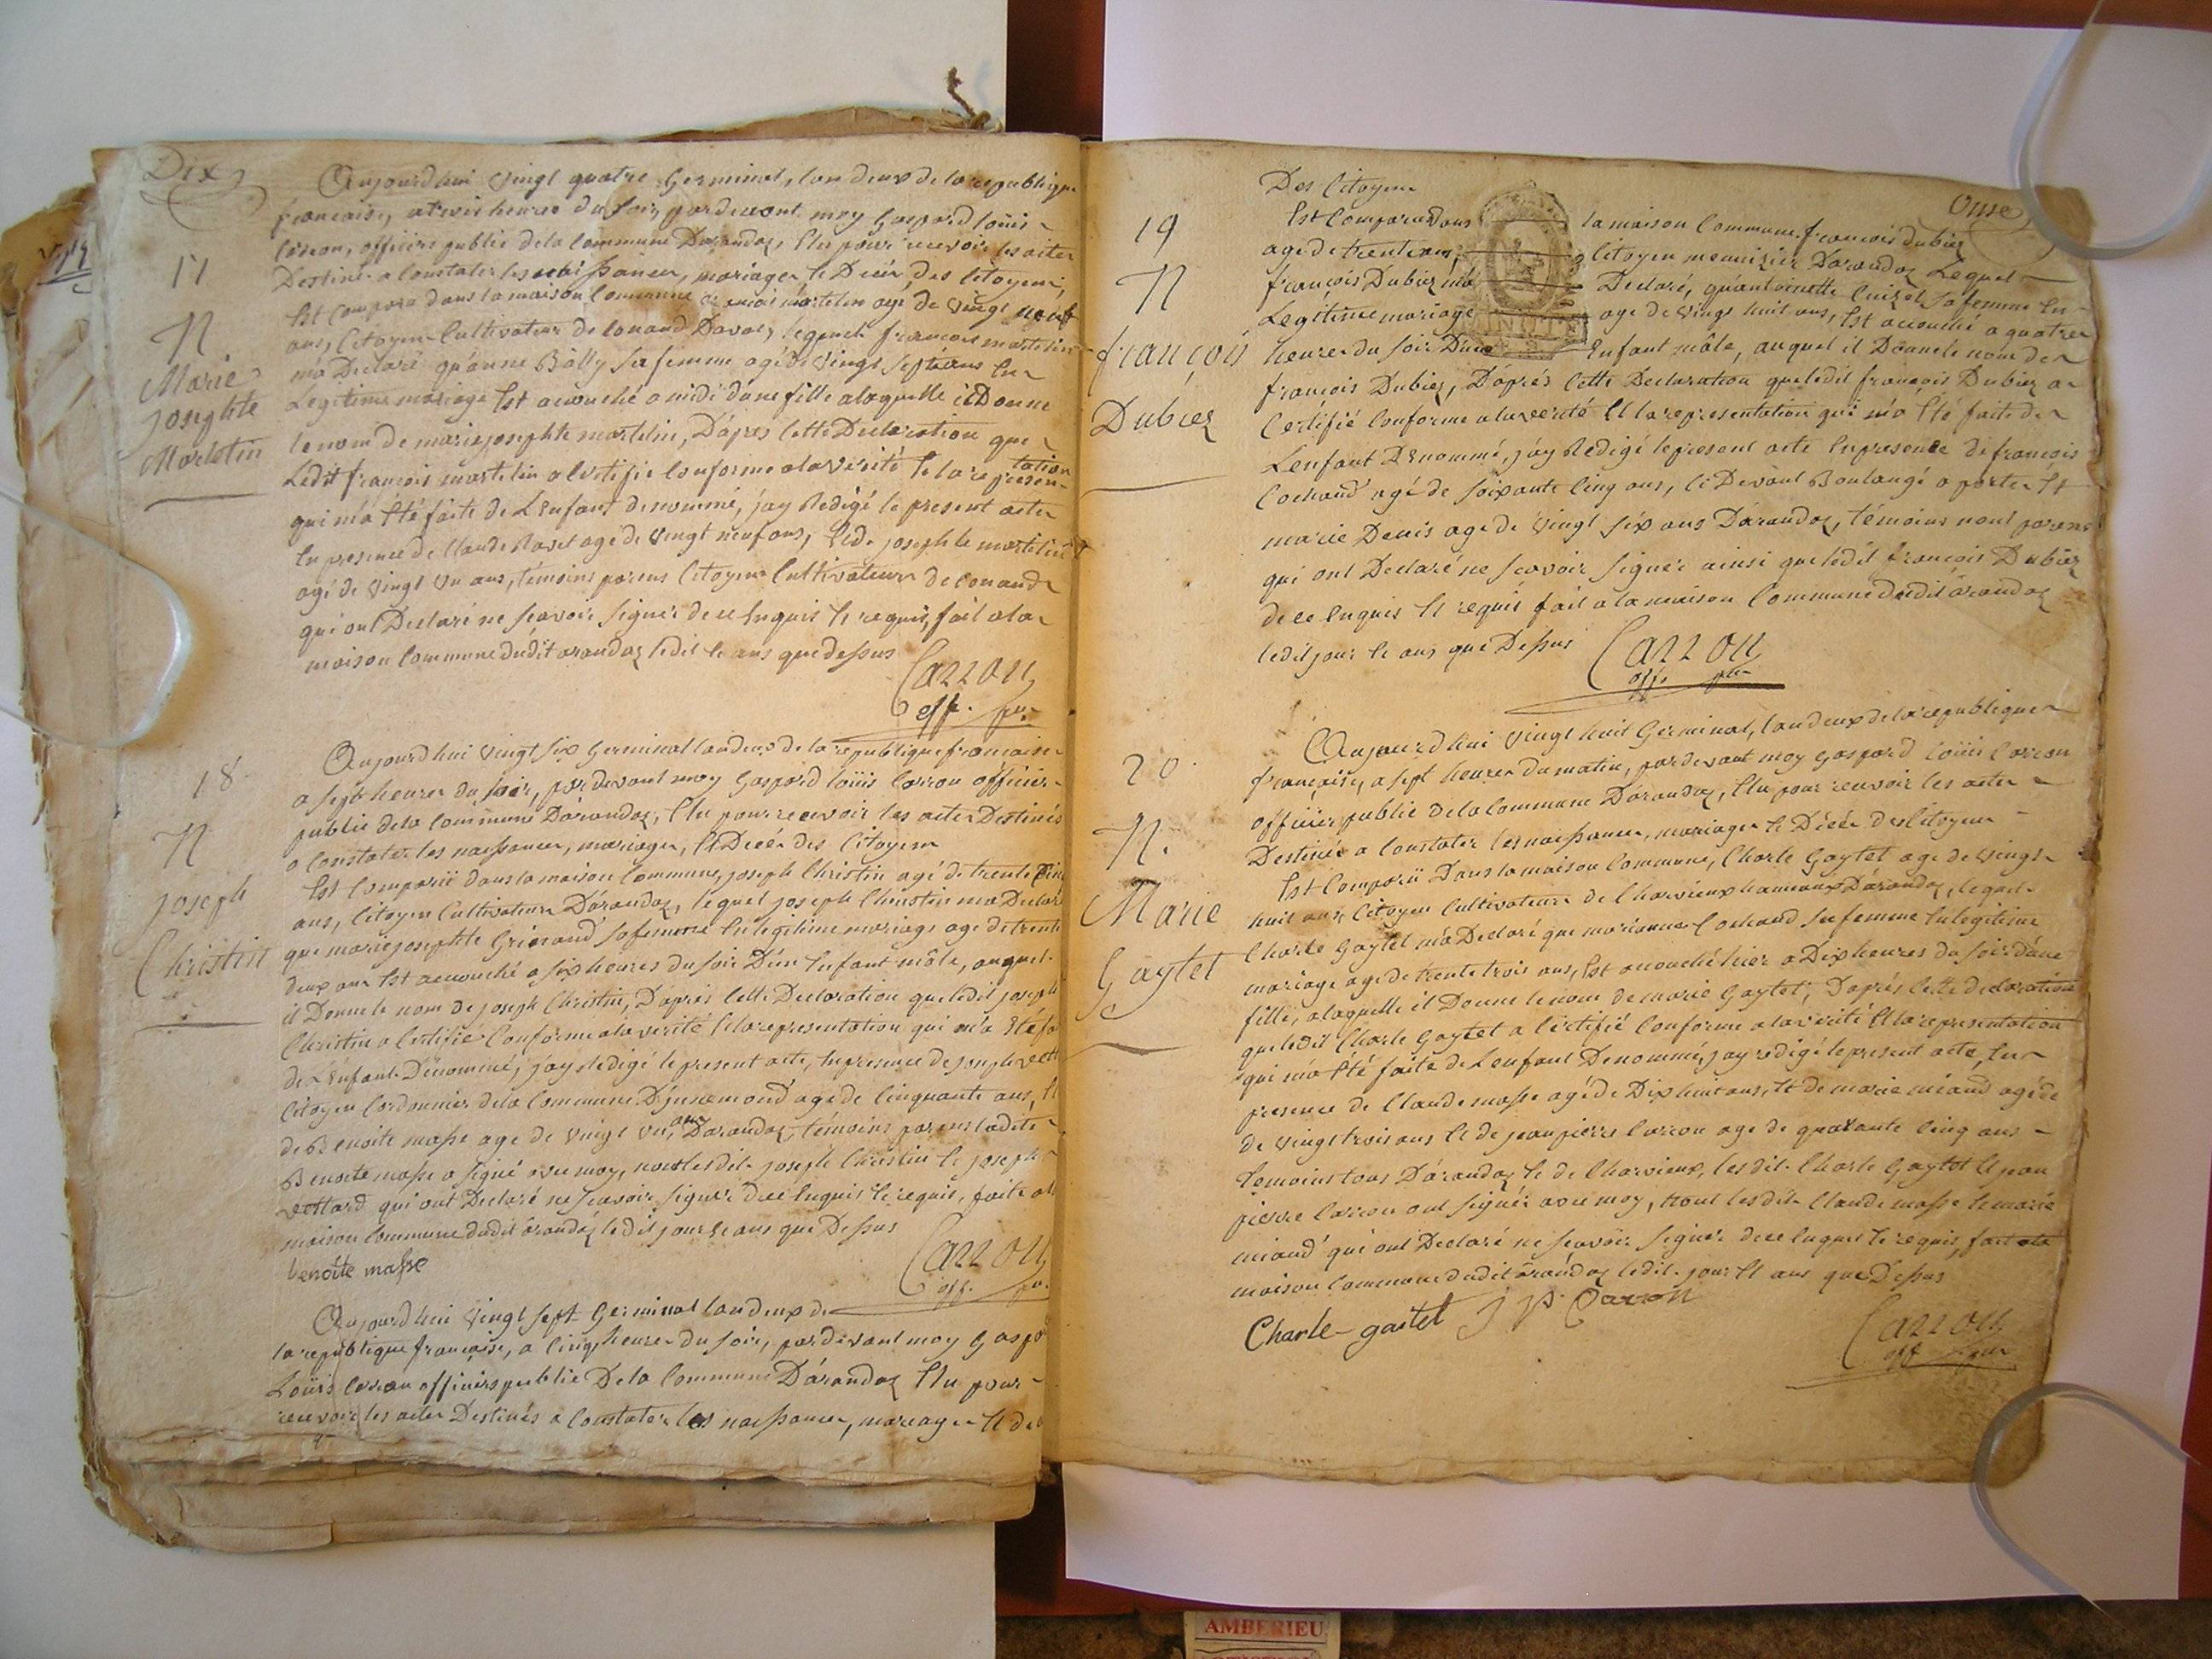 Dix
17
N
Marie
josephte
Martelin
Aujourdhui vingt quatre Germinal, lan deux de la republique
francaise, a trois heures du soir, pardevant moy Gaspard loüis
Carron, officier public de la Commune Darandaz, Elu pour recevoir les actes
Destinés a Constater les naissances, mariages, et Decés, des Citoyens,
Est Comparu dans la maison Commune francois martelin age de vingt neuf
ans, Citoyen Cultivateur de Conand Davaz, lequel francois martelin
m'a Declaré qu'anne Bally sa femme agé de vingt sept ans En
Legitime mariage Est acouché a midi d'une fille a laquelle il Donne
le nom de marie josephte martelin, D'apres Cette Declaration que
Ledit francois martelin a Certifie Conforme a la verité Et la represen-
tation
qui m'a Eté faite de L'Enfant denommé, j'ay Redigé le present acte
En presence de Claude Ravet agé de vingt neuf ans, Et de josephte martelin
agé de vingt un ans, témoins parens Citoyens Cultivateurs de Conand
qui ont Declaré ne sçavoir signer de ce Enquis Et requis, fait a la
maison Commune dudit arandaz ledit Et ans que dessus
Carron
off. pu.
18
N
joseph
Christin
Aujourdhui vingt six Germinal lan deux de la republique francaise
a sept heures du soir, pardevant moy Gaspard loüis Carron officier
public de la Commune D'arandaz, Elu pour recevoir les actes Destinés
a Constater les naissances, mariages, Et Decés des Citoyens
Est Comparü dans la maison Commune, joseph Christin agé de trente Cinq
ans, Citoyen Cultivateur D'arandaz, lequel joseph Christin m'a Declaré
que marie josephte Grinand sa femme En legitime mariage age de trente
deux ans Est acouché a six heures du soir D'un Enfant mâle, auquel
il Donne le nom de joseph Christin, D'apres Cette Declaration que ledit joseph
Christin a Certifié Conforme a la verité Et la representation qui m'a Eté fa
de L'Enfant Dénommé, j'ay Redigé le present acte, En presence de joseph vett
Citoyen Cordonnier de la Commune D'junemond agé de Cinquante ans, Et
de Benoite masse age de vingt un ans D'arandaz, témoins parens ladite
Benoite masse a signé avec moy, non lesdits joseph Christin Et joseph
vettard qui ont Declaré ne sçavoir signer de ce Enquis Et requis, fait a la
maison Commune dudit arandaz ledit jour Et ans que Dessus
benoîte masse
Carron
off. pu.
Aujourdhui vingt sept Germinal lan deux de
la republique francaise, a Cinq heures du soir, pardevant moy Gaspa
Loüis Carron officier public De la Commune D'arandaz Elu pour
recevoir les actes Destinés a Constater les naissances, mariages Et de
Onse
19
N
françois
Dubiez
Des Citoyens
Est Comparu dans la maison Commune francois Dubiez
age de trente ans, Citoyen menuizier Darandaz Lequel
francois Dubiez m'a Declaré, qu'antoinette Cuizet sa femme En
Legitime mariage age de vingt huit ans, Est acouché a quatre
heures du soir D'un Enfant mâle, auquel il Donne le nom de
françois Dubiez, D'aprés Cette Declaration que ledit françois Dubiez a
Certifié Conforme a la verité Et la representation qui m'a Eté faite de
L'enfant Dénommé, j'ay Redigé le present acte En presence de françois
Cochand agé de soixante Cinq ans, Ci Devant Boulangé a porter Et
marie Denis age de vingt six ans D'arandaz, témoins nont parens
qui ont Declaré ne sçavoir signer ainsi que ledit françois Dubiez
de ce Enquis Et requis fait a la maison Commune dudit arandaz
ledit jour Et ans que Dessus
Carron
off. pu.
20
N.
Marie
Gaytet
Aujourdhui vingt huit Germinal, lan deux de la republique
française, a sept heures du matin, pardevant moy Gaspard loüis Carron
officier public de la Commune D'arandaz, Elu pour recevoir les actes
Destinés a Constater les naissances, mariages Et Décés des Citoyens
Est Comparü Dans la maison Commune, Charle Gaytet age de vingt
huit ans, Citoyen Cultivateur de Charvieux hameaux D'arandaz, lequel
Charle Gaytet m'a Declaré que marianne Cochand sa femme En legitime
mariage age de trente trois ans, Est acouché hier a Dix heures du soir d'une
fille, a laquelle il Donne le nom de marie Gaytet, D'aprés Cette declaration
que ledit Charle Gaytet a Certifié Conforme a la verité Et la representation
qui m'a Eté faite de L'enfant Denommé, j'ay redigé le present acte, En
presence de Claude masse agé de Dix huit ans, Et de marie miand agé de
de vingt trois ans Et de jean pierre Carron age de quarante Cinq ans
Temoins tous D'arandaz Et de Charvieux, lesdits Charle Gaytet Et jean
pierre Carron ont signés avec moy, non lesdits Claude masse Et marie
miand qui ont Declaré ne sçavoir signer de ce Enquis Et requis, fait a la
maison Commune dudit arandaz ledit jour Et ans que Dessus
Charle gaitet J P Carron
Carron
off. pu.
AMBERIEU